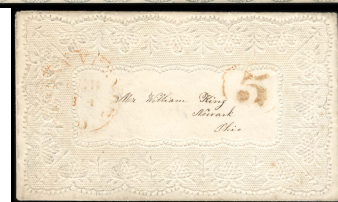 Mr William King
Newark
Ohio
5